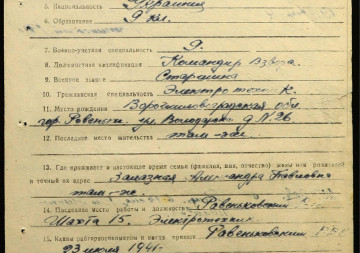 5. Национальность Украинец
6. Образование 9 кл.
7. Военно-учетная специальность 9.
8. Должностная квалификация Командир взвода.
9. Военное звание Старшина
10. Гражданская специальность Электротехник.
11. Место рождения Ворошиловградская обл.
гор. Ровеньки. ул. д. №26
12. Последнее место жительства там-же.
13. Где проживает в настоящее время семья (фамилия, имя, отчество) жены или родителей
и точный их адрес Александра Павловна
там-же.
14. Последнее место работы и должность
Шахта 15. Электротехник.
15. Каким райвоенкоматом и когда призван
23 июля 1941 г.